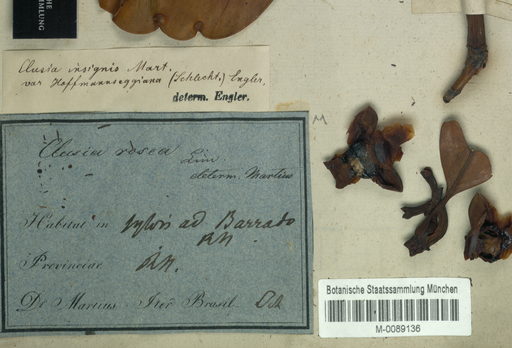 SAMMLUNG
Clusia insignis Mart.
var Hoffmannseggiana (Schlecht.) Engler.
determ. Engler.
M
Clusia rosea Lin
determ. Martius
Habitat in sylvis ad Barra do
RN
Provinciae RN.
De Martius Iter Brasil
Botanische Staatssammlung München
M-0089136